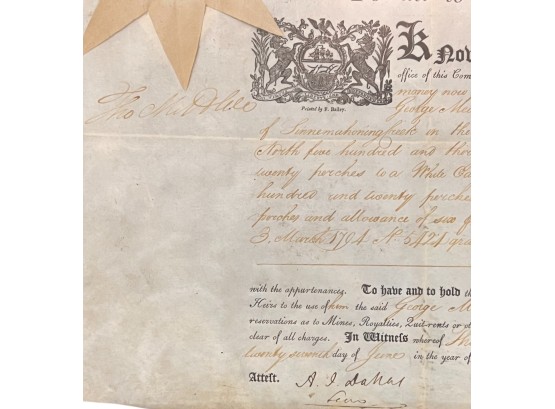 Know
office of this Com
George Mee
Printed by F. Bailey.
Tho Mifflin
of Sinnemahoning Creek in the
North five hundred and thr
twenty perches to a White Oa
hundred and twenty perche
perches and allowance of six
3. March 1794 No 5424 gra
with the appurtenances. To have and to hold th
Heirs to the use of him the said George M
reservations as to Mines, Royalties, Quit-rents or ot
clear of all charges. In Witness whereof Tho
twenty second day of June in the year of
Attest. A. J. Dallas
Secr